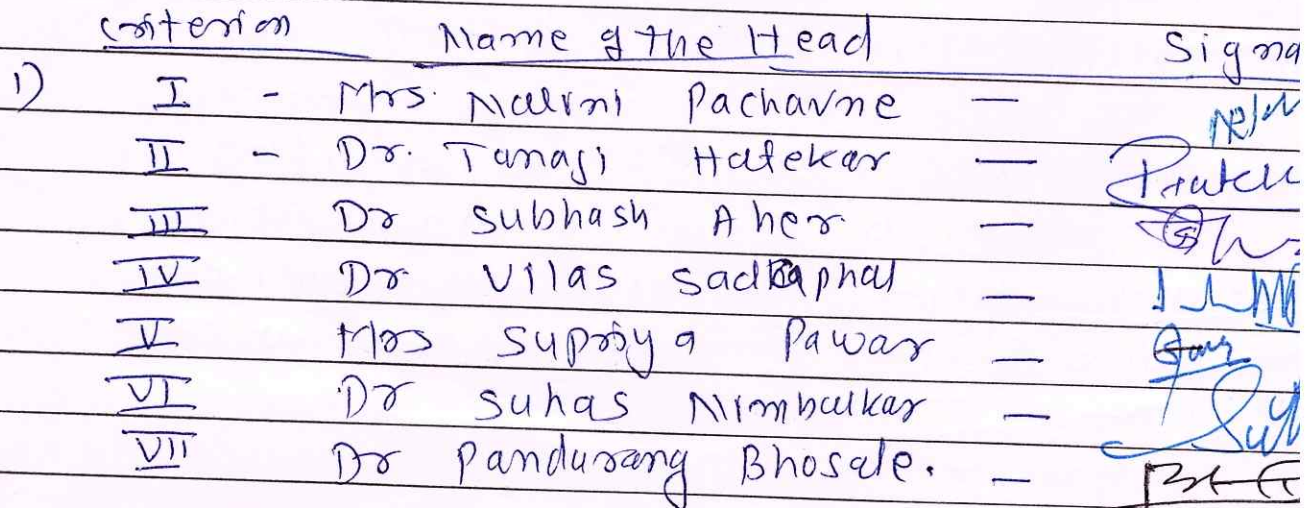 Criterion Name of the Head Signa
1) I - Mrs. Nalini Pachavne -
II - Dr. Tanaji Hatekar -
III Dr Subhash Aher -
IV Dr Vilas Sadkaphal -
V Mrs Supriya Pawar -
VI Dr Suhas Nimbalkar -
VII Dr Pandurang Bhosale. -